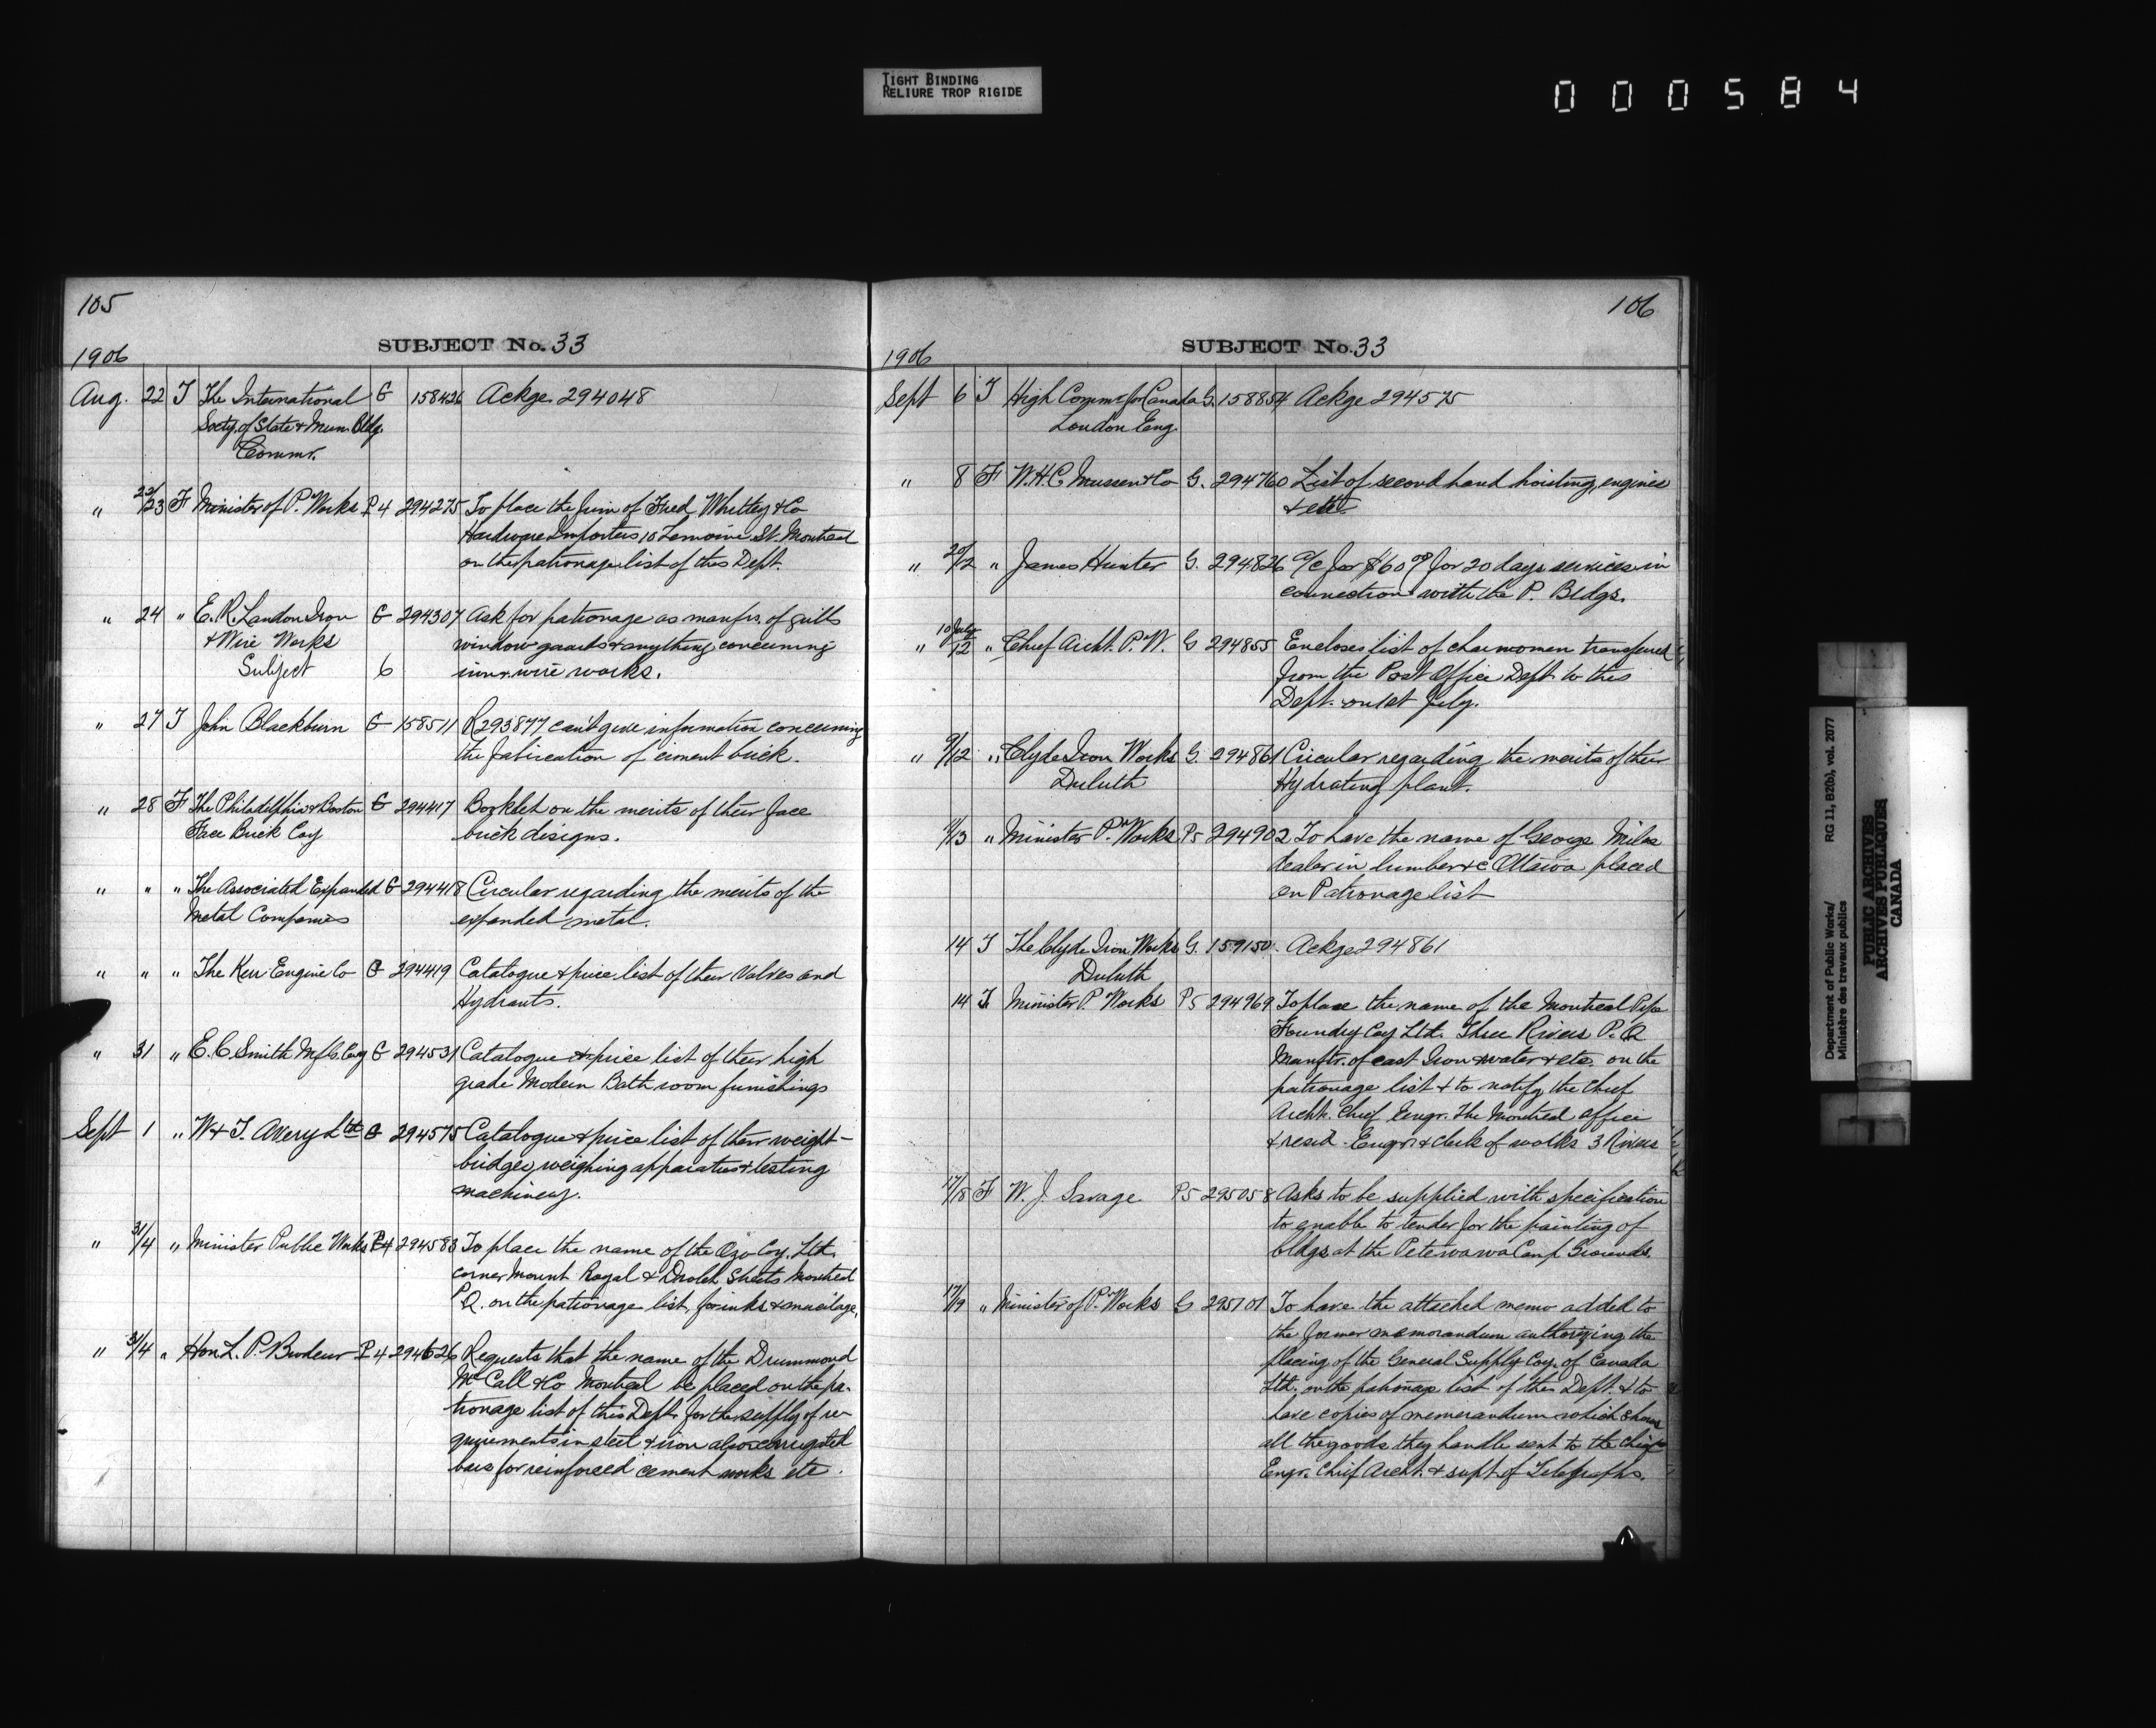 TIGHT BINDING
RELIURE TROP RIGIDE
000584
105
SUBJECT No. 33
1906
Aug. 22 T The International G 158426 Ackge 294048
Socty. of State & Mun. Bldg.
Commr.
" 22/23 F Minister of P. Works P4 294275 To place the firm of Fred Whitley & Co
Hardware Importers 10 Lemoine St. Montreal
on the patronage list of this Dept.
" 24 " E. R. Landon Iron G 294307 Ask for patronage as manfrs. of grills
& Wire Works window guards & anything concerning
Subject 6 iron wire works.
" 27 T John Blackburn G 158511 R 293877 can't give information concerning
the fabrication of ciment brick.
" 28 F The Philidelphia & Boston G 294417 Booklet on the merits of their face
Face Brick Coy brick designs.
" " " The Associated Expanded G 294418 Circular regarding the merits of the
Metal Companies expanded metal.
" " " The Kerr Engine Co G 294419 Catalogue & price list of their Valves and
Hydrants.
" 31 " E. C. Smith Mfg. Coy G 294531 Catalogue & price list of their high
grade Modern Bath room furnishings
Sept 1 " W & T. Avery Ltd G 294575 Catalogue & price list of their weight-
bridges, weighing apparatus & testing
machinery.
" 31/4 " Minister Public Works P4 294583 To place the name of the Ozo Coy. Ltd.
corner Mount Royal & Drolet Streets Montreal
P.Q. on the patronage list, for inks & mucilage.
" 31/4 " Hon L. P. Brodeur P4 294626 Requests that the name of the Drummond
McCall & Co Montreal be placed on the pa-
tronage list of this Dept. for the supply of re-
quirements in steel & iron also corrugated
bars for reinforced cement works etc.
106
SUBJECT No. 33
1906
Sept 6 T High Commr for Canada G. 158854 Ackge 294575
London Eng.
" 8 F W.H.C. Mussen & Co G. 294760 List of second hand hoisting engines
& etc
" 20/12 " James Hunter G. 294826 a/c for $60.00 for 20 days services in
connection with the P. Bldgs.
" 10 July/12 " Chief Archt. P. W. G 294855 Encloses list of charwomen transferred
from the Post Office Dept. to this
Dept. on 1st July.
" 9/12 " Clyde Iron Works G. 294861 Circular regarding the merits of their
Duluth Hydrating plant.
/13 " Minister P. Works P5 294902 To have the name of George Miles
dealer in lumber &c Ottawa placed
on Patronage list
14 T The Clyde Iron Works G. 159150 Ackge 294861
Duluth
14 F Minister P. Works P5 294969 To place the name of the Montreal Pipe
Foundry Coy Ltd. Three Rivers P.Q
Manftr. of cast Iron & water & etc. on the
patronage list & to notify the Chief
Archt. Chief Engr. The Montreal office
& resid. Engr. & clerk of works 3 Rivers
17/18 F W. J. Savage P5 295058 Asks to be supplied with specification
to enable to tender for the painting of
bldgs. at the Petewawa Camp Grounds.
17/19 " Minister of P. Works G 295101 To have the attached memo added to
the former memorandum authorizing the
placing of the General Supply Coy. of Canada
Ltd. on the patronage list of this Dept. & to
have copies of memorandum which shows
all the goods they handle sent to the Chief
Engr. Chief Archt. & supt. of Telegraphs.
Department of Public Works/ RG 11, B2(b), vol. 2077
Ministère des travaux publics
PUBLIC ARCHIVES
ARCHIVES PUBLIQUES
CANADA